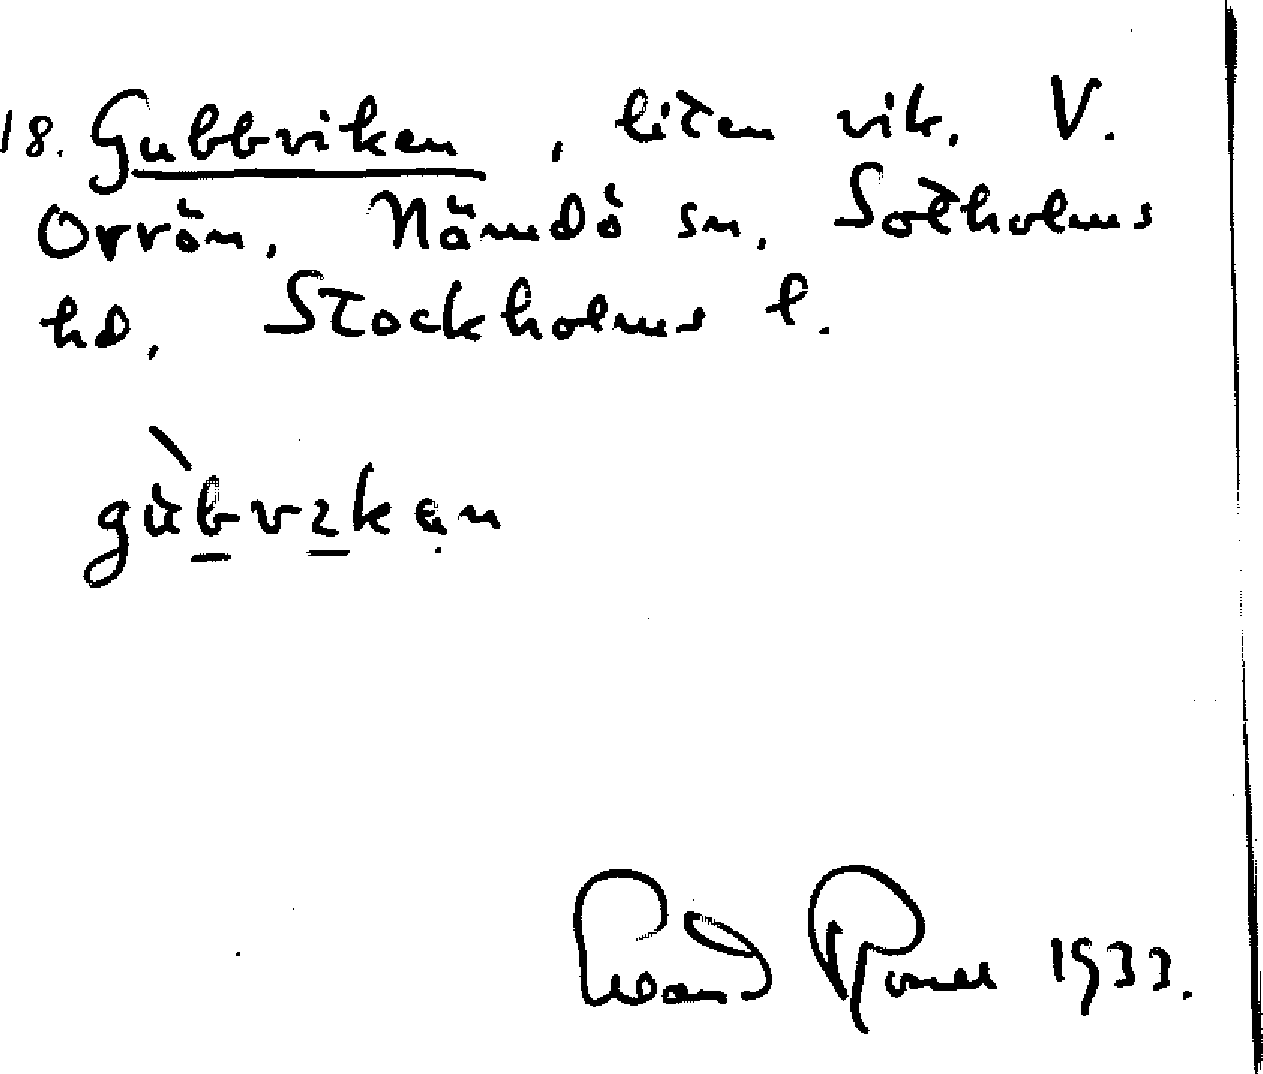 18. Gubbviken, liten vik. V.
Orrön. Nämdö sn, Sotholms
hd, Stockholms l.
gùbvikən
1933.